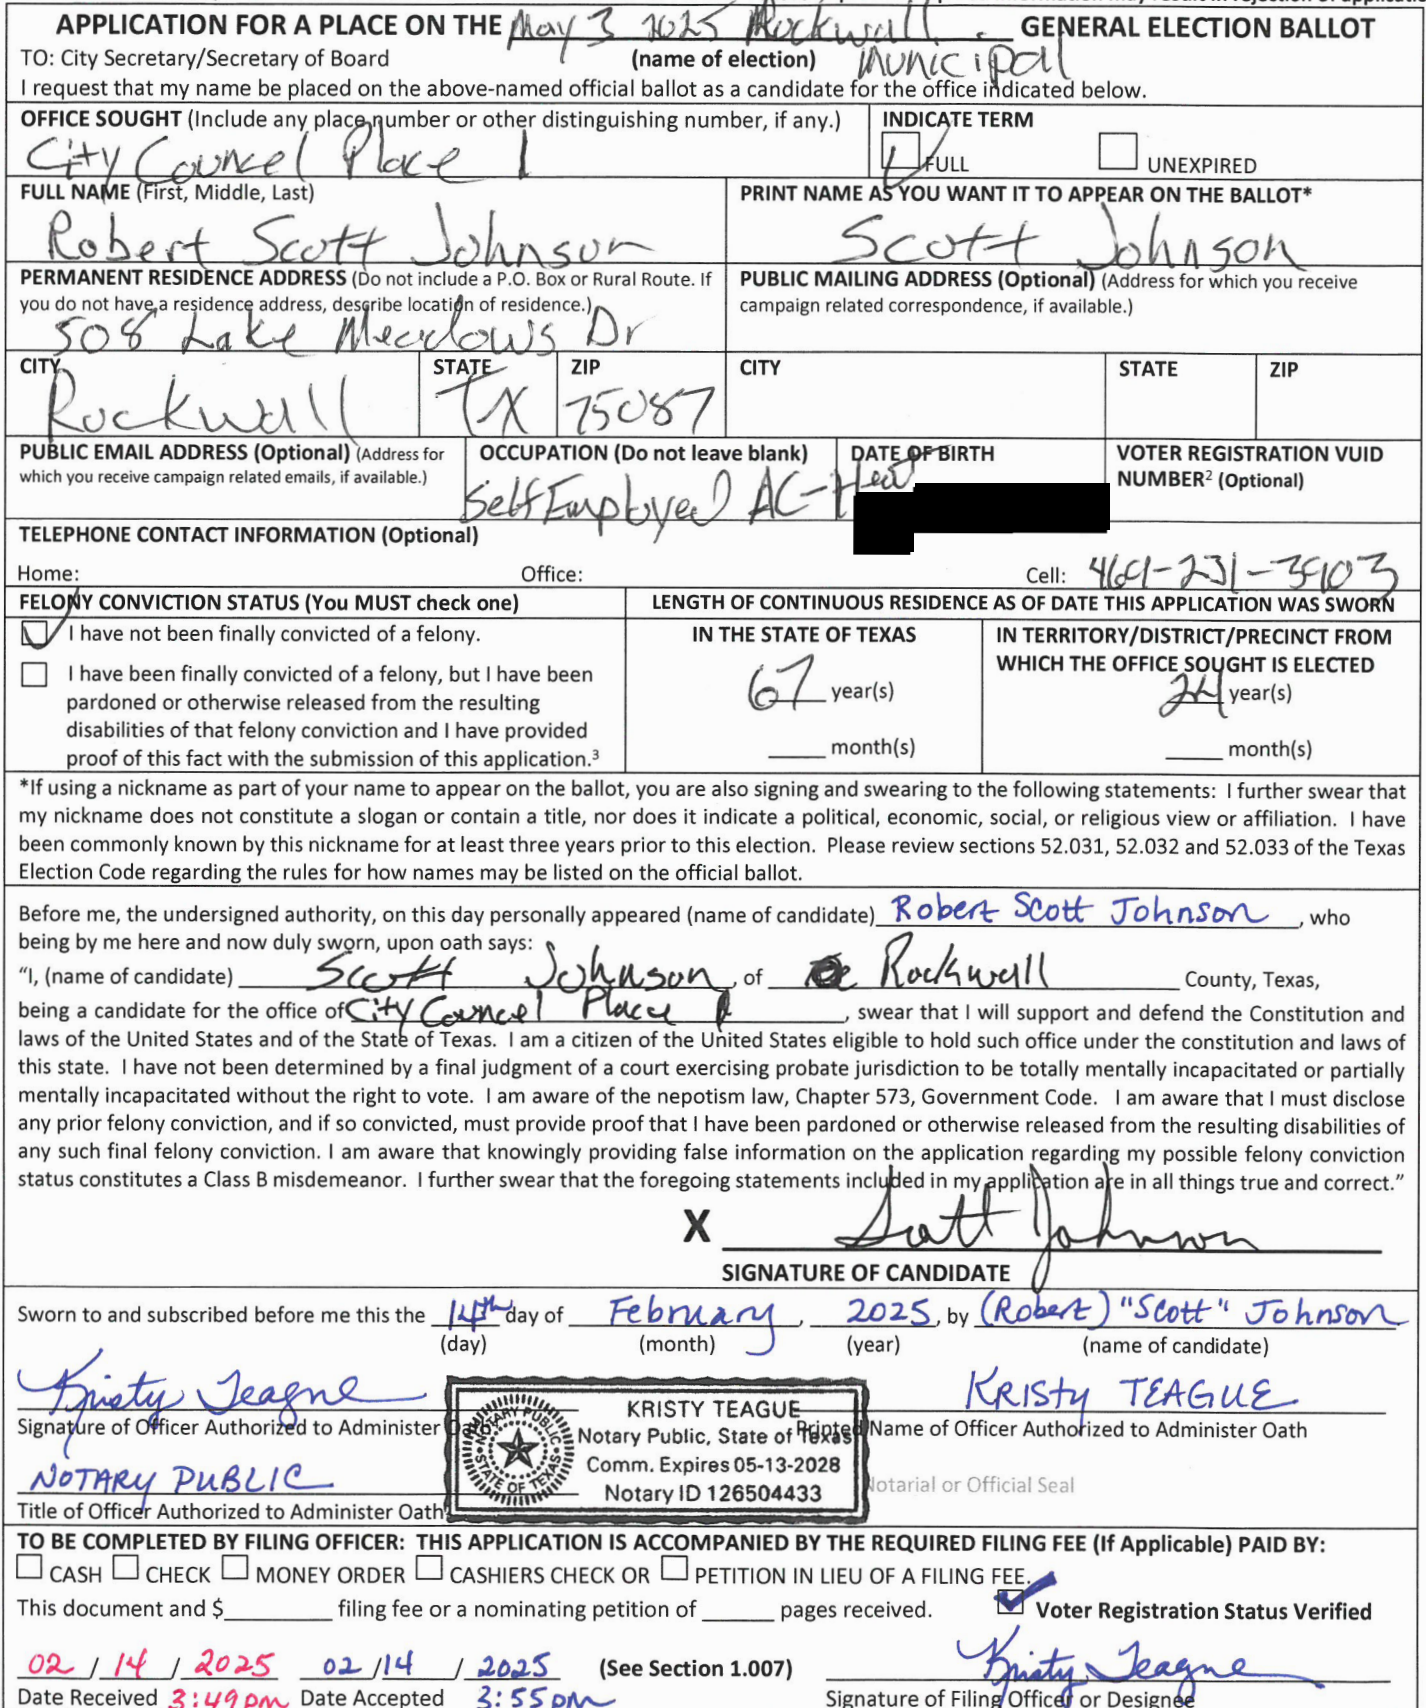 APPLICATION FOR A PLACE ON THE May 3 2025 Rockwall Municipal GENERAL ELECTION BALLOT
TO: City Secretary/Secretary of Board (name of election)
I request that my name be placed on the above-named official ballot as a candidate for the office indicated below.
OFFICE SOUGHT (Include any place number or other distinguishing number, if any.)
City Councel Place 1
INDICATE TERM
FULL UNEXPIRED
FULL NAME (First, Middle, Last)
Robert Scott Johnson
PRINT NAME AS YOU WANT IT TO APPEAR ON THE BALLOT*
Scott Johnson
PERMANENT RESIDENCE ADDRESS (Do not include a P.O. Box or Rural Route. If
you do not have a residence address, describe location of residence.)
508 Lake Meadows Dr
PUBLIC MAILING ADDRESS (Optional) (Address for which you receive
campaign related correspondence, if available.)
CITY STATE ZIP CITY STATE ZIP
Rockwall TX 75087
PUBLIC EMAIL ADDRESS (Optional) (Address for
which you receive campaign related emails, if available.)
OCCUPATION (Do not leave blank)
Self Employed AC-Heat
DATE OF BIRTH
VOTER REGISTRATION VUID
NUMBER² (Optional)
TELEPHONE CONTACT INFORMATION (Optional)
Home: Office: Cell: 469-231-3903
FELONY CONVICTION STATUS (You MUST check one)
I have not been finally convicted of a felony.
I have been finally convicted of a felony, but I have been
pardoned or otherwise released from the resulting
disabilities of that felony conviction and I have provided
proof of this fact with the submission of this application.³
LENGTH OF CONTINUOUS RESIDENCE AS OF DATE THIS APPLICATION WAS SWORN
IN THE STATE OF TEXAS
67 year(s)
month(s)
IN TERRITORY/DISTRICT/PRECINCT FROM
WHICH THE OFFICE SOUGHT IS ELECTED
24 year(s)
month(s)
*If using a nickname as part of your name to appear on the ballot, you are also signing and swearing to the following statements: I further swear that
my nickname does not constitute a slogan or contain a title, nor does it indicate a political, economic, social, or religious view or affiliation. I have
been commonly known by this nickname for at least three years prior to this election. Please review sections 52.031, 52.032 and 52.033 of the Texas
Election Code regarding the rules for how names may be listed on the official ballot.
Before me, the undersigned authority, on this day personally appeared (name of candidate) Robert Scott Johnson, who
being by me here and now duly sworn, upon oath says:
"I, (name of candidate) Scott Johnson, of Rockwall County, Texas,
being a candidate for the office of City Councel Place 1, swear that I will support and defend the Constitution and
laws of the United States and of the State of Texas. I am a citizen of the United States eligible to hold such office under the constitution and laws of
this state. I have not been determined by a final judgment of a court exercising probate jurisdiction to be totally mentally incapacitated or partially
mentally incapacitated without the right to vote. I am aware of the nepotism law, Chapter 573, Government Code. I am aware that I must disclose
any prior felony conviction, and if so convicted, must provide proof that I have been pardoned or otherwise released from the resulting disabilities of
any such final felony conviction. I am aware that knowingly providing false information on the application regarding my possible felony conviction
status constitutes a Class B misdemeanor. I further swear that the foregoing statements included in my application are in all things true and correct."
X Scott Johnson
SIGNATURE OF CANDIDATE
Sworn to and subscribed before me this the 14th day of February, 2025, by (Robert) "Scott" Johnson
(day) (month) (year) (name of candidate)
Kristy Teague KRISTY TEAGUE
Signature of Officer Authorized to Administer Oath Printed Name of Officer Authorized to Administer Oath
NOTARY PUBLIC
Title of Officer Authorized to Administer Oath
NOTARY PUBLIC
STATE OF TEXAS
KRISTY TEAGUE
Notary Public, State of Texas
Comm. Expires 05-13-2028
Notary ID 126504433
Notarial or Official Seal
TO BE COMPLETED BY FILING OFFICER: THIS APPLICATION IS ACCOMPANIED BY THE REQUIRED FILING FEE (If Applicable) PAID BY:
CASH CHECK MONEY ORDER CASHIERS CHECK OR PETITION IN LIEU OF A FILING FEE.
This document and $ filing fee or a nominating petition of pages received. Voter Registration Status Verified
02 / 14 / 2025 02 / 14 / 2025 (See Section 1.007) Kristy Teague
Date Received 3:49 pm Date Accepted 3:55 pm Signature of Filing Officer or Designee